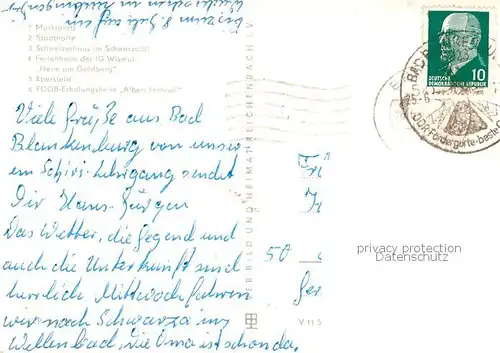 bis zum 8. Juli auf
1 Marktplatz
2 Stadthalle
3 Schweizerhaus im Schwarzatal
4 Ferienheim der IG Wismut
„Heim am Goldberg"
5 Eberstein
6 FDGB-Erholungsheim
Viele Grüße aus Bad
Blankenburg von unser
em Schiri-Lehrgang sendet
Dir Hans-Jürgen
Das Wetter, die Gegend und
auch die Unterkunft sind
herrlich Mittwoch fahren
wir nach Schwarza ins
Wellenbad, die Oma ist schon da.
BILD UND HEIMAT REICHENBACH I. V.
V 11 5
50
DEUTSCHE
DEMOKRATISCHE REPUBLIK
10
BAD
privacy protection
Datenschutz